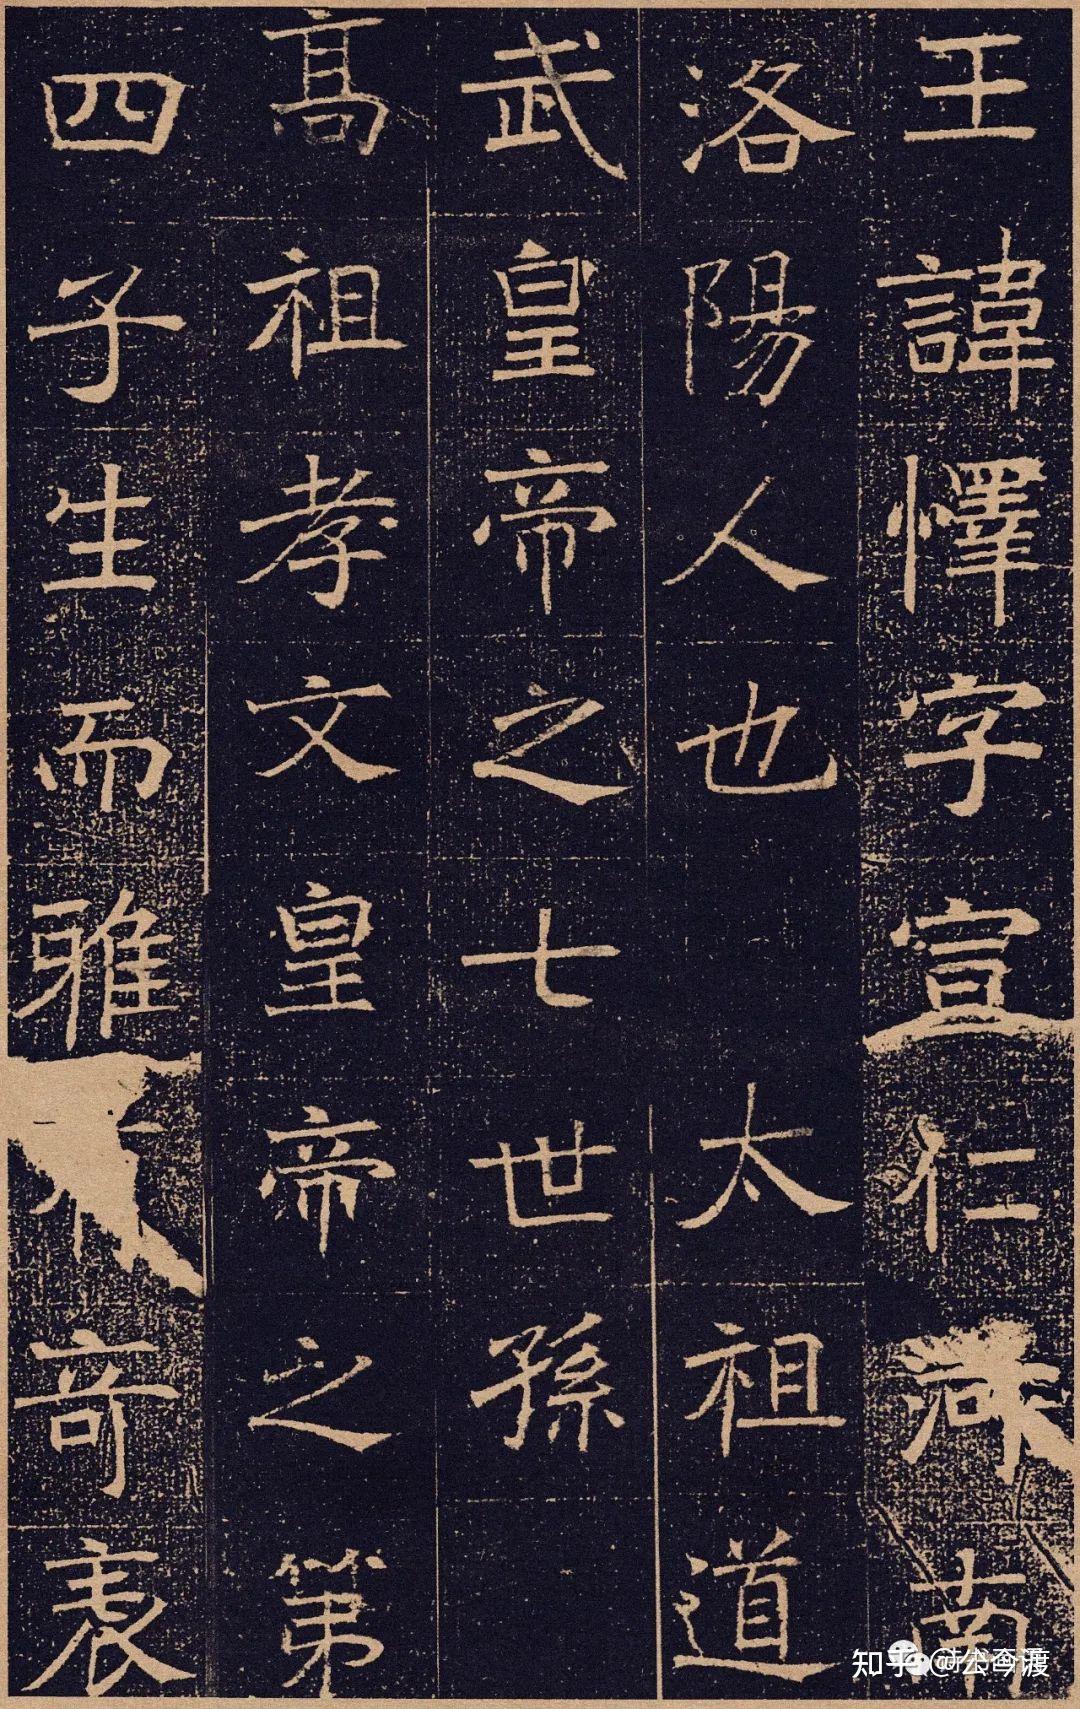 王諱懌字宣仁河南
洛陽人也 太祖道
武皇帝之七世孫
高祖孝文皇帝之第
四子生而雅奇表
知乎